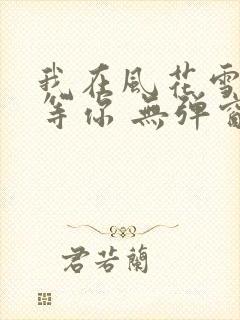 我在風花雪
等你 無彈窗
君若蘭